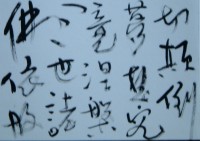 切顛倒
夢想究
竟涅槃
三世諸
佛依般